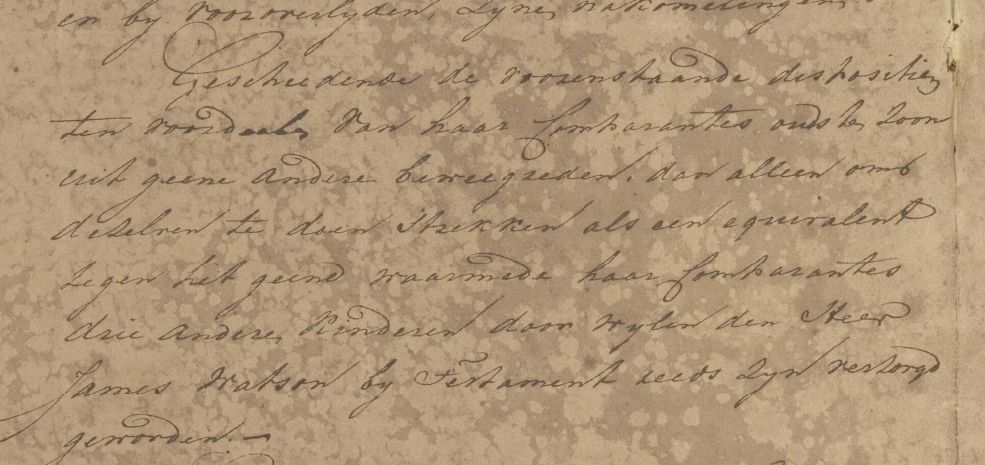 en by vooroverlyden, Zyne, nakomelingen
Gescheedende de voorenstaande dispositien
ten voordeele, van haar Comparantes oudste, Zoon
uit geene andere beweegreden, dan alleen om
deselven te doen strekken als een equivalent
tegen het geend waarmede haar Comparantes
drie andere, Kinderen door wylen den Heer
James Watson by Testament reeds Zyn verzorgd
geworden.—